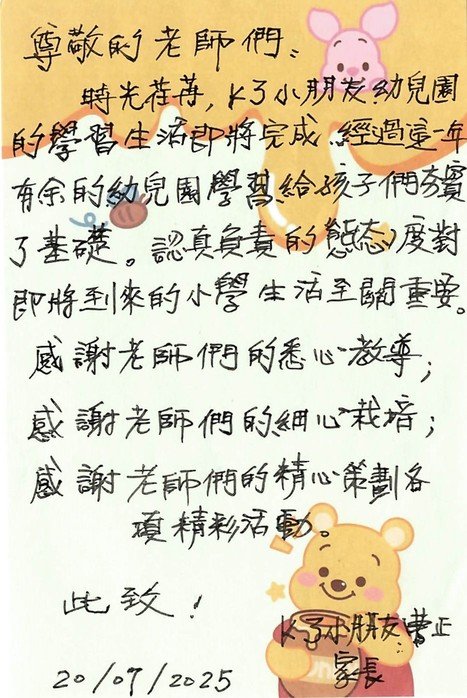 尊敬的老師們：
時光荏苒，K3小朋友幼兒園
的學習生活即將完成，經過這一年
有余的幼兒園學習給孩子們夯實
了基礎。認真負責的態度對
即將到來的小學生活至關重要。
感謝老師們的悉心教導；
感謝老師們的細心栽培；
感謝老師們的精心策劃各
項精彩活動。
此致！
K3小朋友：曹正
家長
20/07/2025